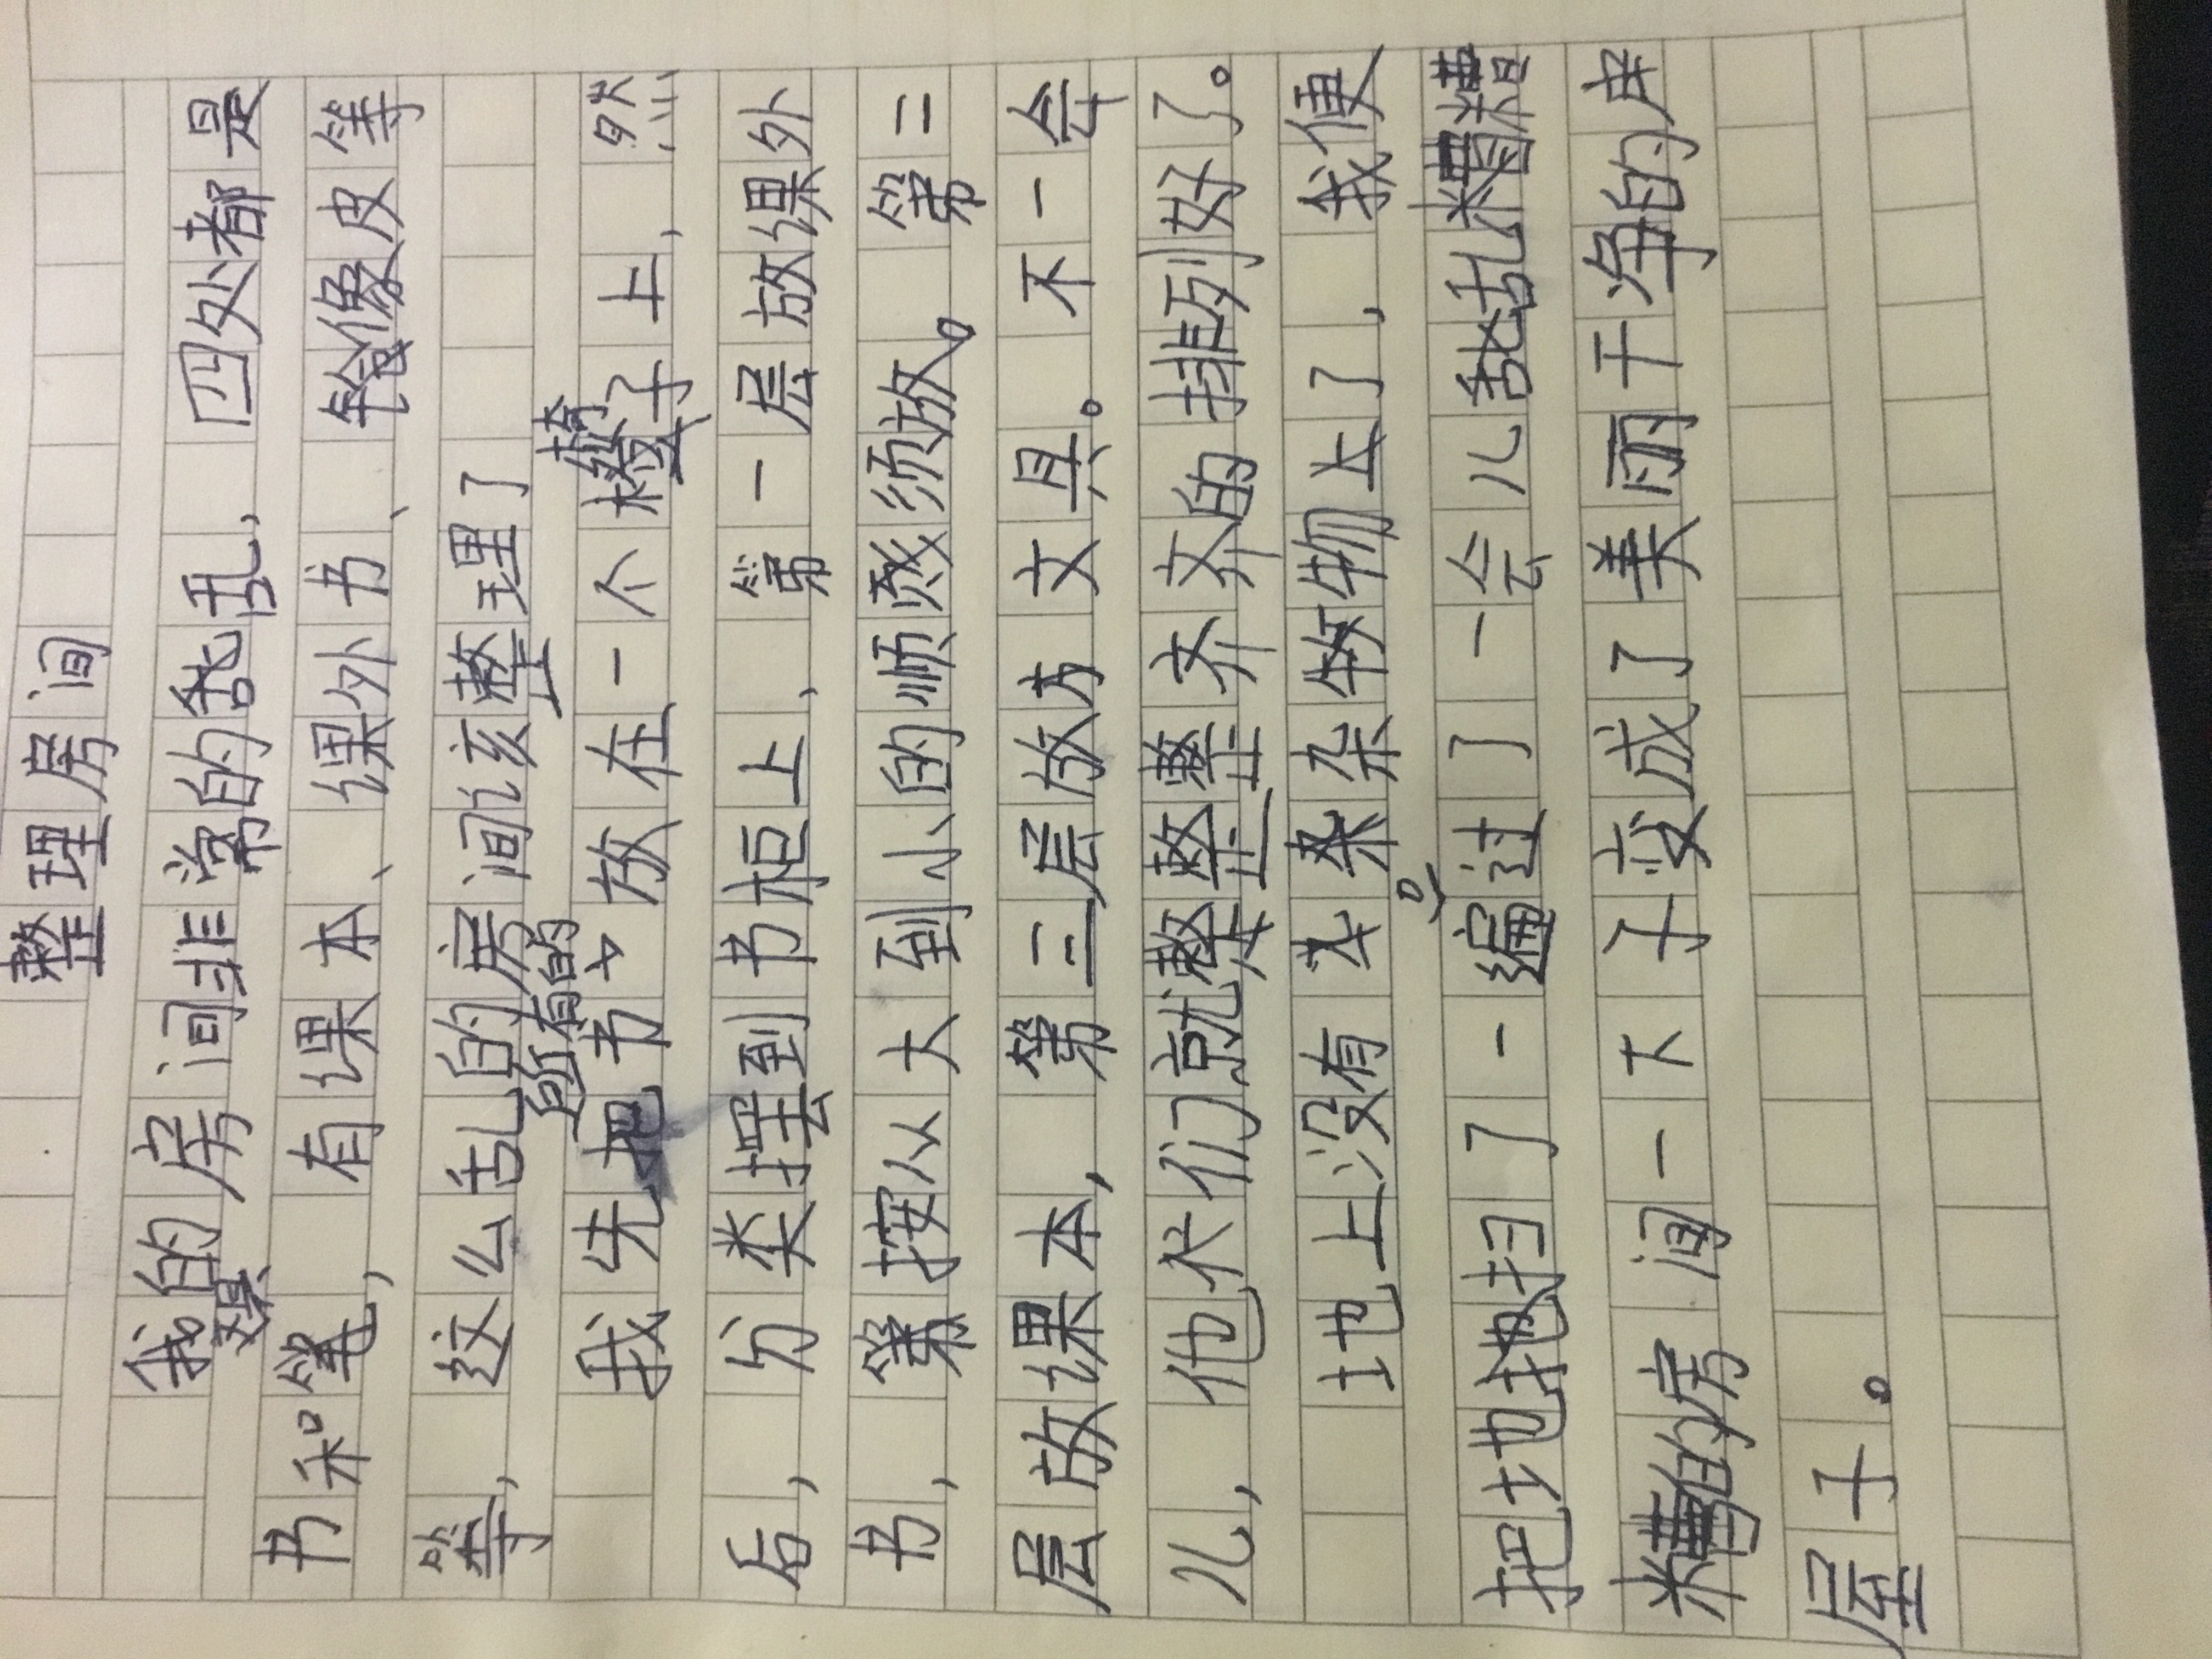 整理房间
我的房间非常的乱乱，四处都是
书和笔，有课本、课外书、铅像皮等
等，这么乱的房间该整理了
我先把所有的书放在一个椅子上，然
后，分类摆到书柜上，第一层放课外
书，第按从大到小的顺须放。第二
层放课本，第三层放方文具。不一会
儿，他们就整整齐齐的排列好了。
地上没有杂杂物上了，我便
把地扫了一遍过了一会儿乱乱糟糟
糟的房间一下子变成了美丽干净的
屋子。